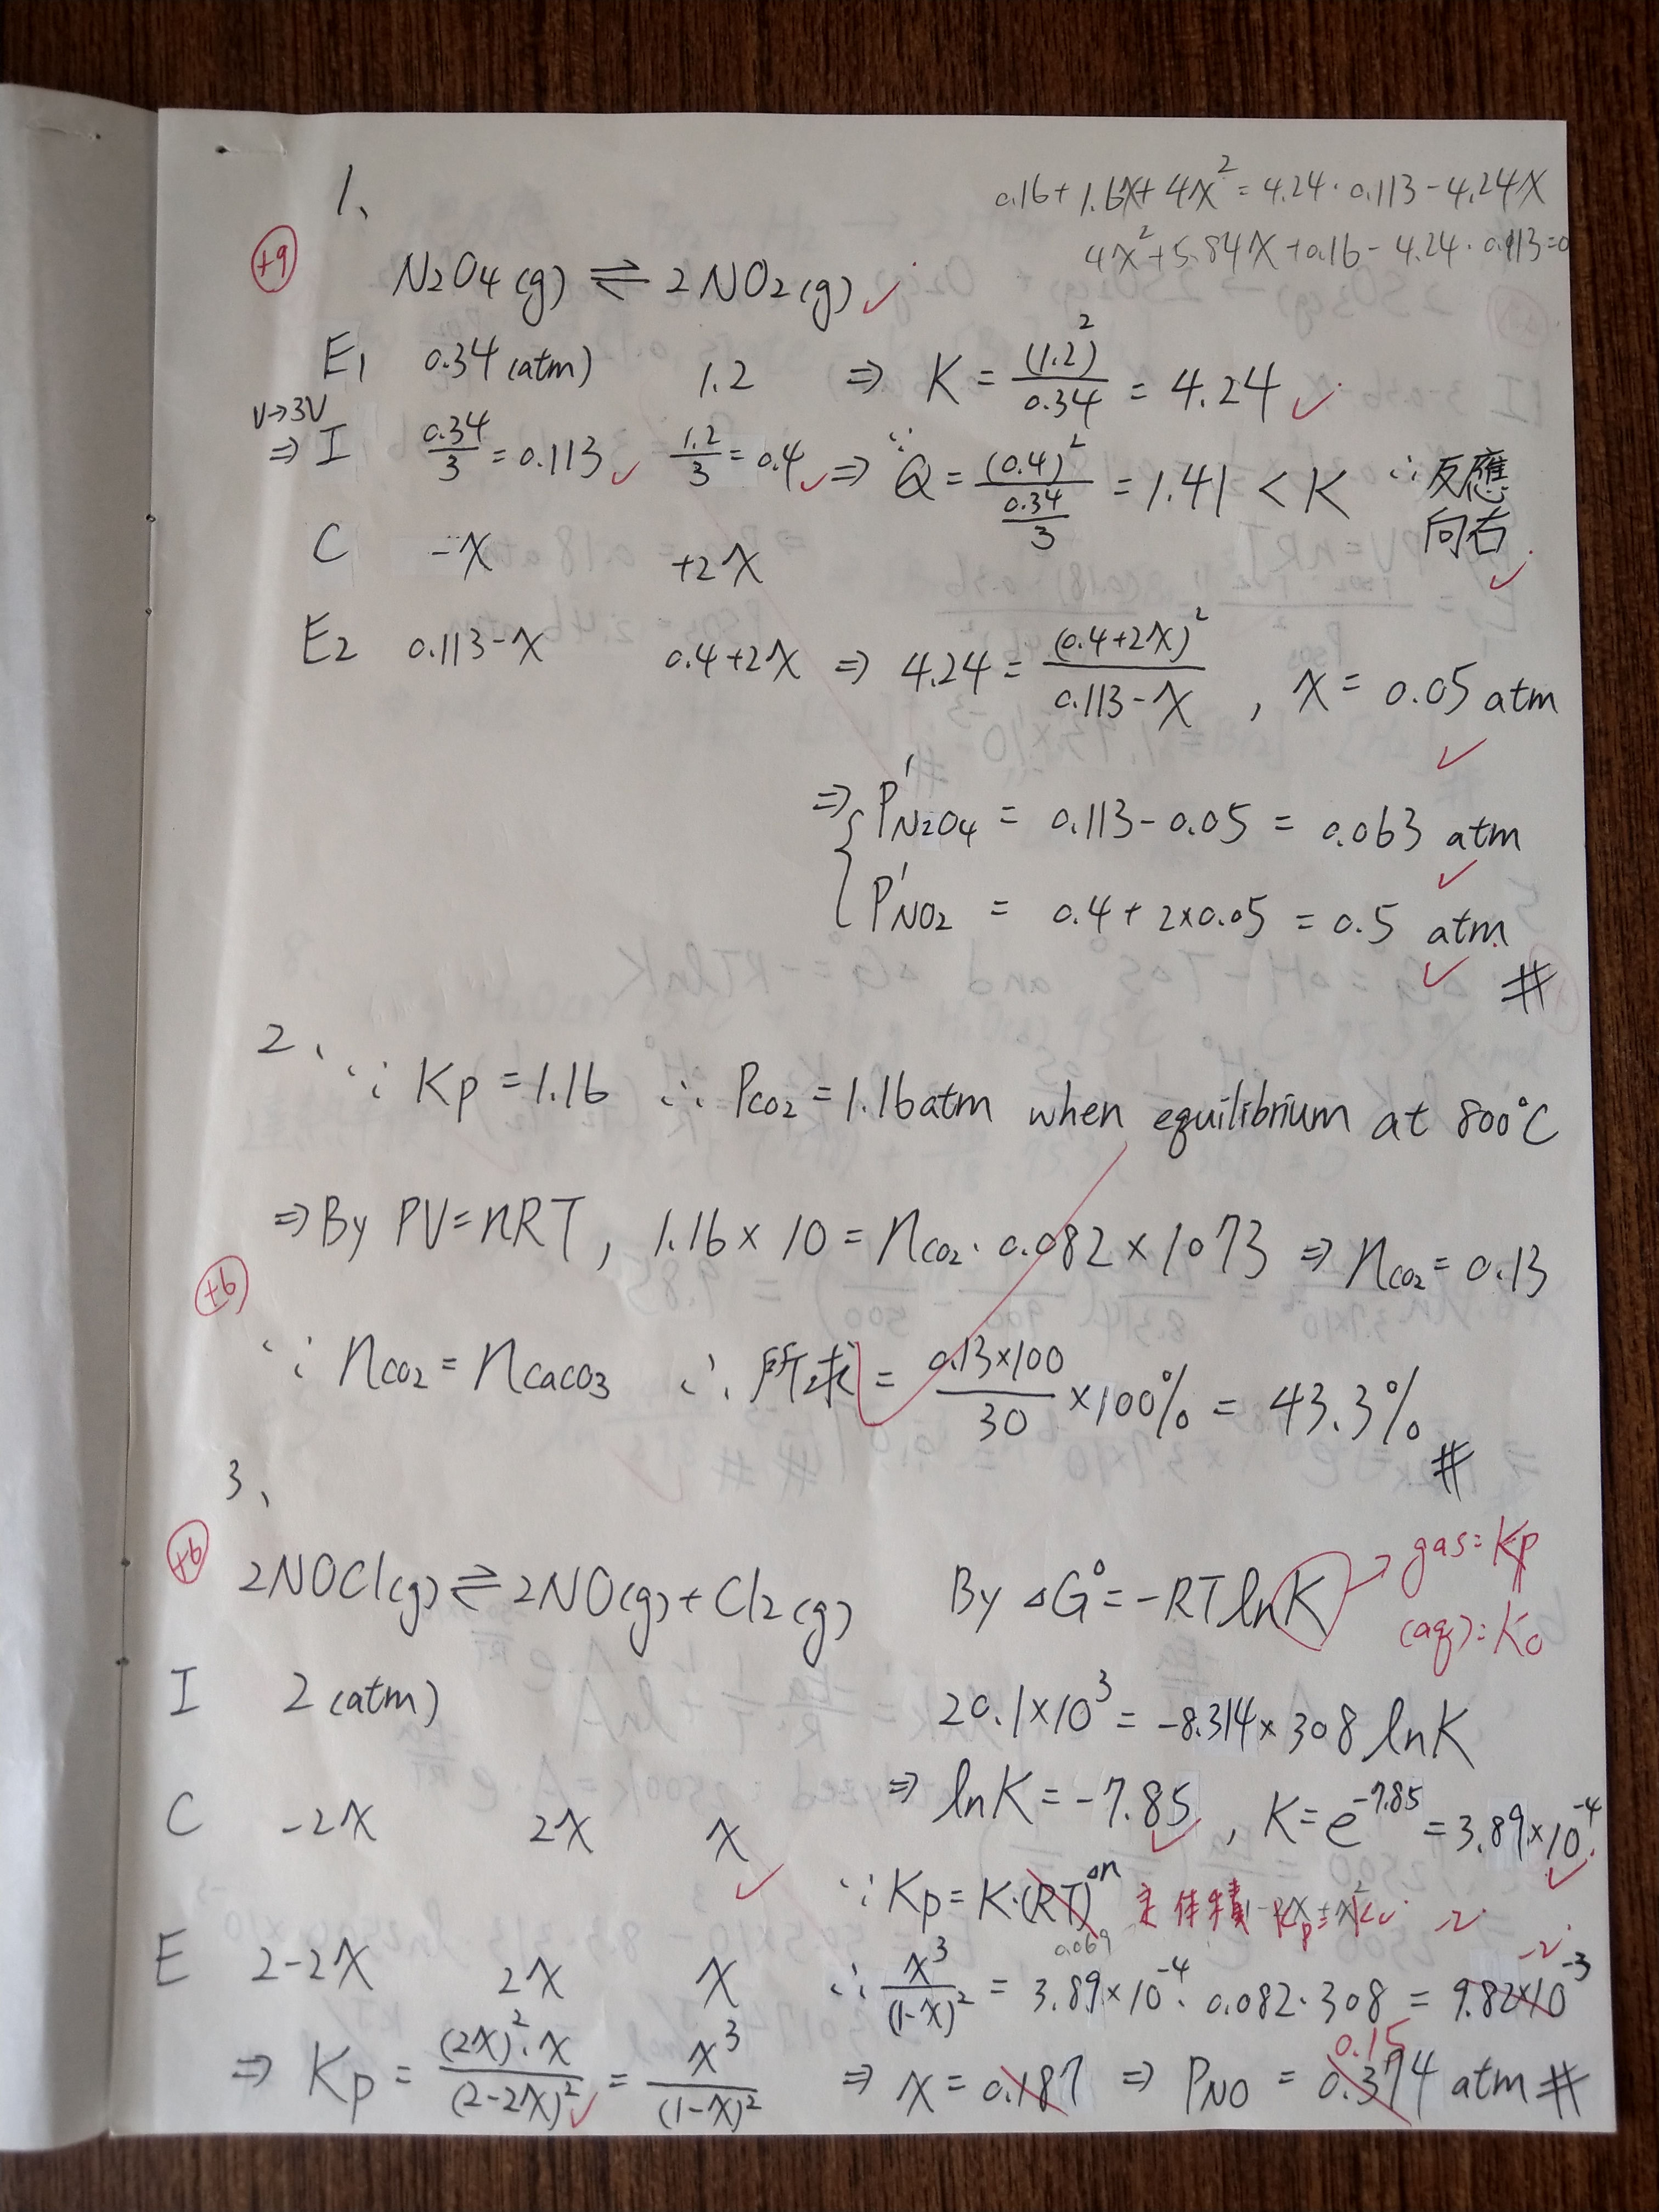 1、
0.16+1.6x+4x²=4.24·0.113-4.24x
4x²+5.84x+0.16-4.24·0.113=0
+9
N₂O₄(g) ⇌ 2NO₂(g) ✓
E₁ 0.34(atm) 1.2 ⇒ K = (1.2)²/0.34 = 4.24 ✓
V→3V
⇒ I 0.34/3 = 0.113 ✓ 1.2/3 = 0.4 ✓ ⇒ ∵ Q = (0.4)²/(0.34/3) = 1.41 < K ∴ 反應
向右 ✓
C -x +2x
E₂ 0.113-x 0.4+2x ⇒ 4.24 = (0.4+2x)²/(0.113-x) , x = 0.05 atm ✓
⇒ { P'N₂O₄ = 0.113-0.05 = 0.063 atm ✓
P'NO₂ = 0.4+2×0.05 = 0.5 atm ✓ #
2、
∵ Kp=1.16 ∴ Pco₂=1.16atm when equilibrium at 800°C
⇒ By PV=nRT, 1.16×10 = nco₂·0.082×1073 ⇒ nco₂=0.13
+6
∵ nco₂ = ncaco₃ ∴ 所求 = 0.13×100/30 ×100% = 43.3% #
3、
+6
2NOCl(g) ⇌ 2NO(g)+Cl₂(g) By ΔG°=-RTlnK → gas: Kp
(aq): Kc
I 2(atm) 20.1×10³ = -8.314×308 lnK
⇒ lnK=-7.85 ✓, K=e^-7.85 = 3.89×10^-4 ✓
C -2x 2x x ✓
∵ Kp=K·(RT)^Δn 定体積 -2
0.069
E 2-2x 2x x ∴ x³/(1-x)² = 3.89×10^-4·0.082·308 = 9.82×10^-3 -2
⇒ Kp = (2x)²·x/(2-2x)² ✓ = x³/(1-x)² ⇒ x=0.187 ⇒ PNO = 0.374 atm #
0.15